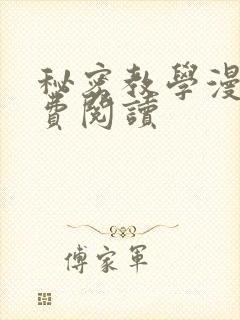 秘密教學漫
費閱讀
傅家軍